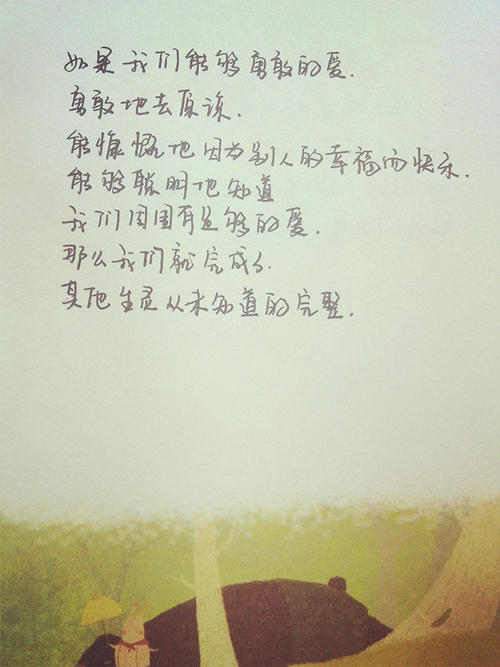 如果我们能够勇敢的爱.
勇敢地去原谅.
能慷慨地因为别人的幸福而快乐.
能够聪明地知道
我们周围有足够的爱.
那么我们就完成了.
其他生灵从未知道的完整.